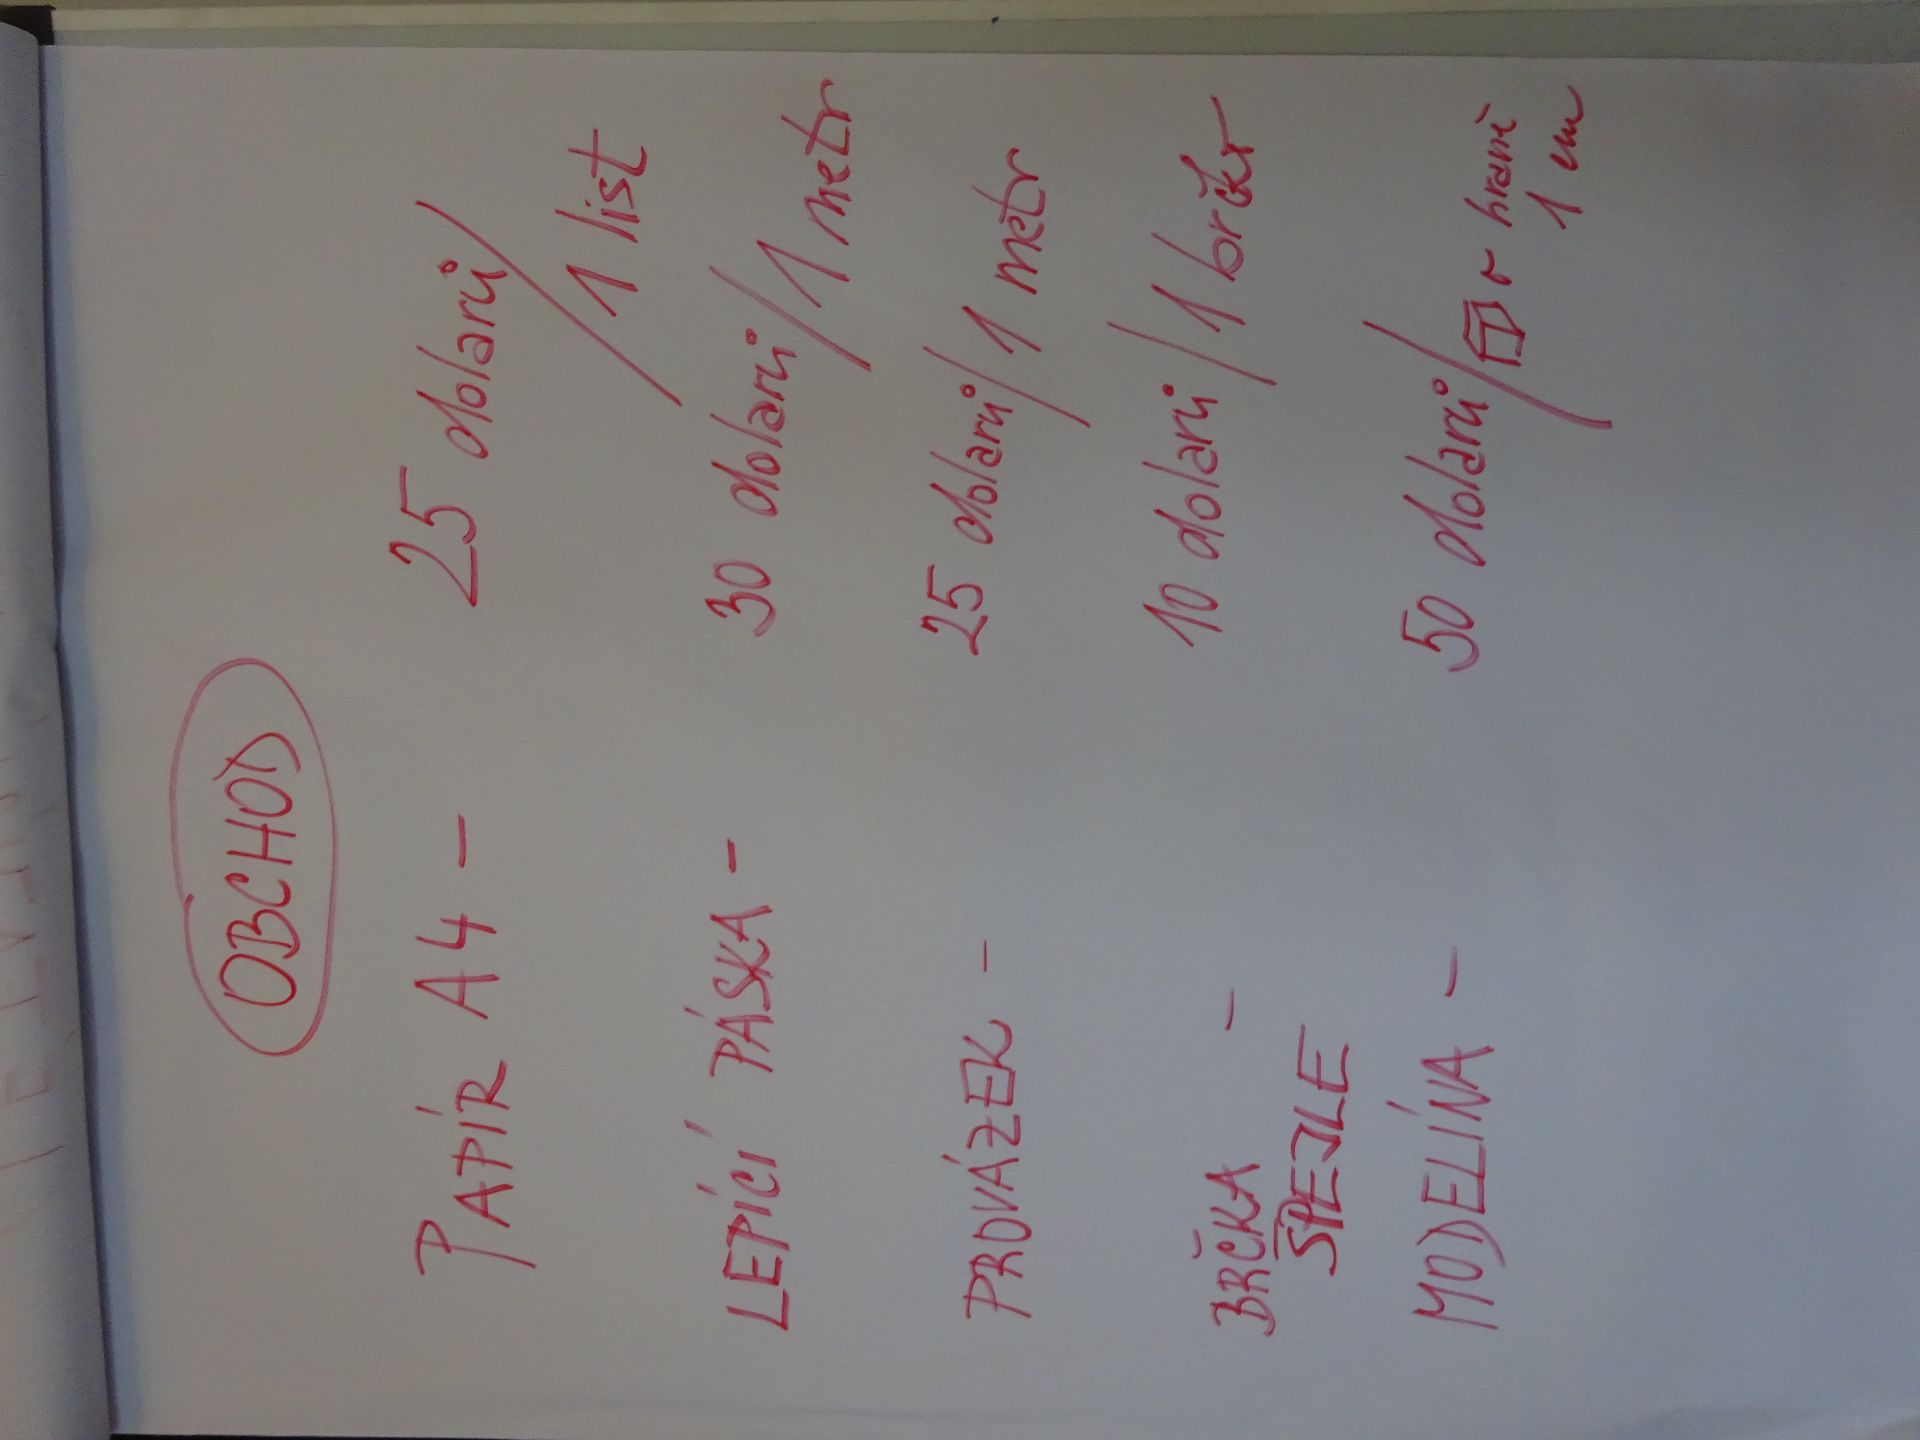 OBCHOD
PAPÍR A4 - 25 dolarů / 1 list
LEPÍCÍ PÁSKA - 30 dolarů / 1 metr
PROVÁZEK - 25 dolarů / 1 metr
BRČKA - 10 dolarů / 1 brčko
ŠPEJLE
MODELÍNA - 50 dolarů / o hraně
1 cm